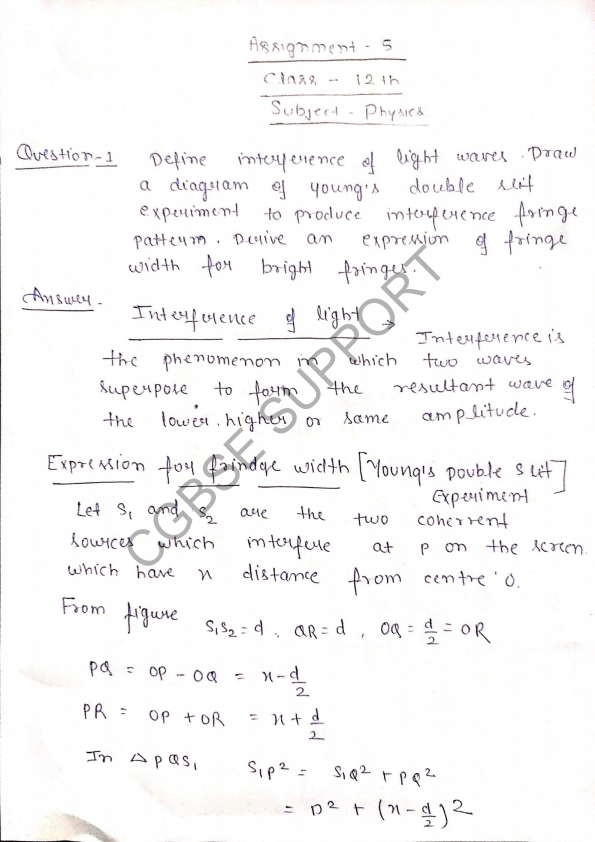 Assignment - 5
Class - 12th
Subject - Physics
Question-1 Define interference of light waves. Draw
a diagram of young's double slit
experiment to produce interference fringe
pattern. Derive an expression of fringe
width for bright fringes.
Answer - Interference of light →
Interference is
the phenomenon in which two waves
superpose to form the resultant wave of
the lower, higher or same amplitude.
Expression for frindge width [Young's Double Slit]
Experiment
Let S₁ and S₂ are the two coherrent
sources which interfere at P on the screen
which have x distance from centre 'O.
From figure S₁S₂ = d, QR = d, OQ = d/2 = OR
PQ = OP - OQ = x - d/2
PR = OP + OR = x + d/2
In △ PQS₁ S₁P² = S₁Q² + PQ²
= D² + (x - d/2)²
CGBSE SUPPORT